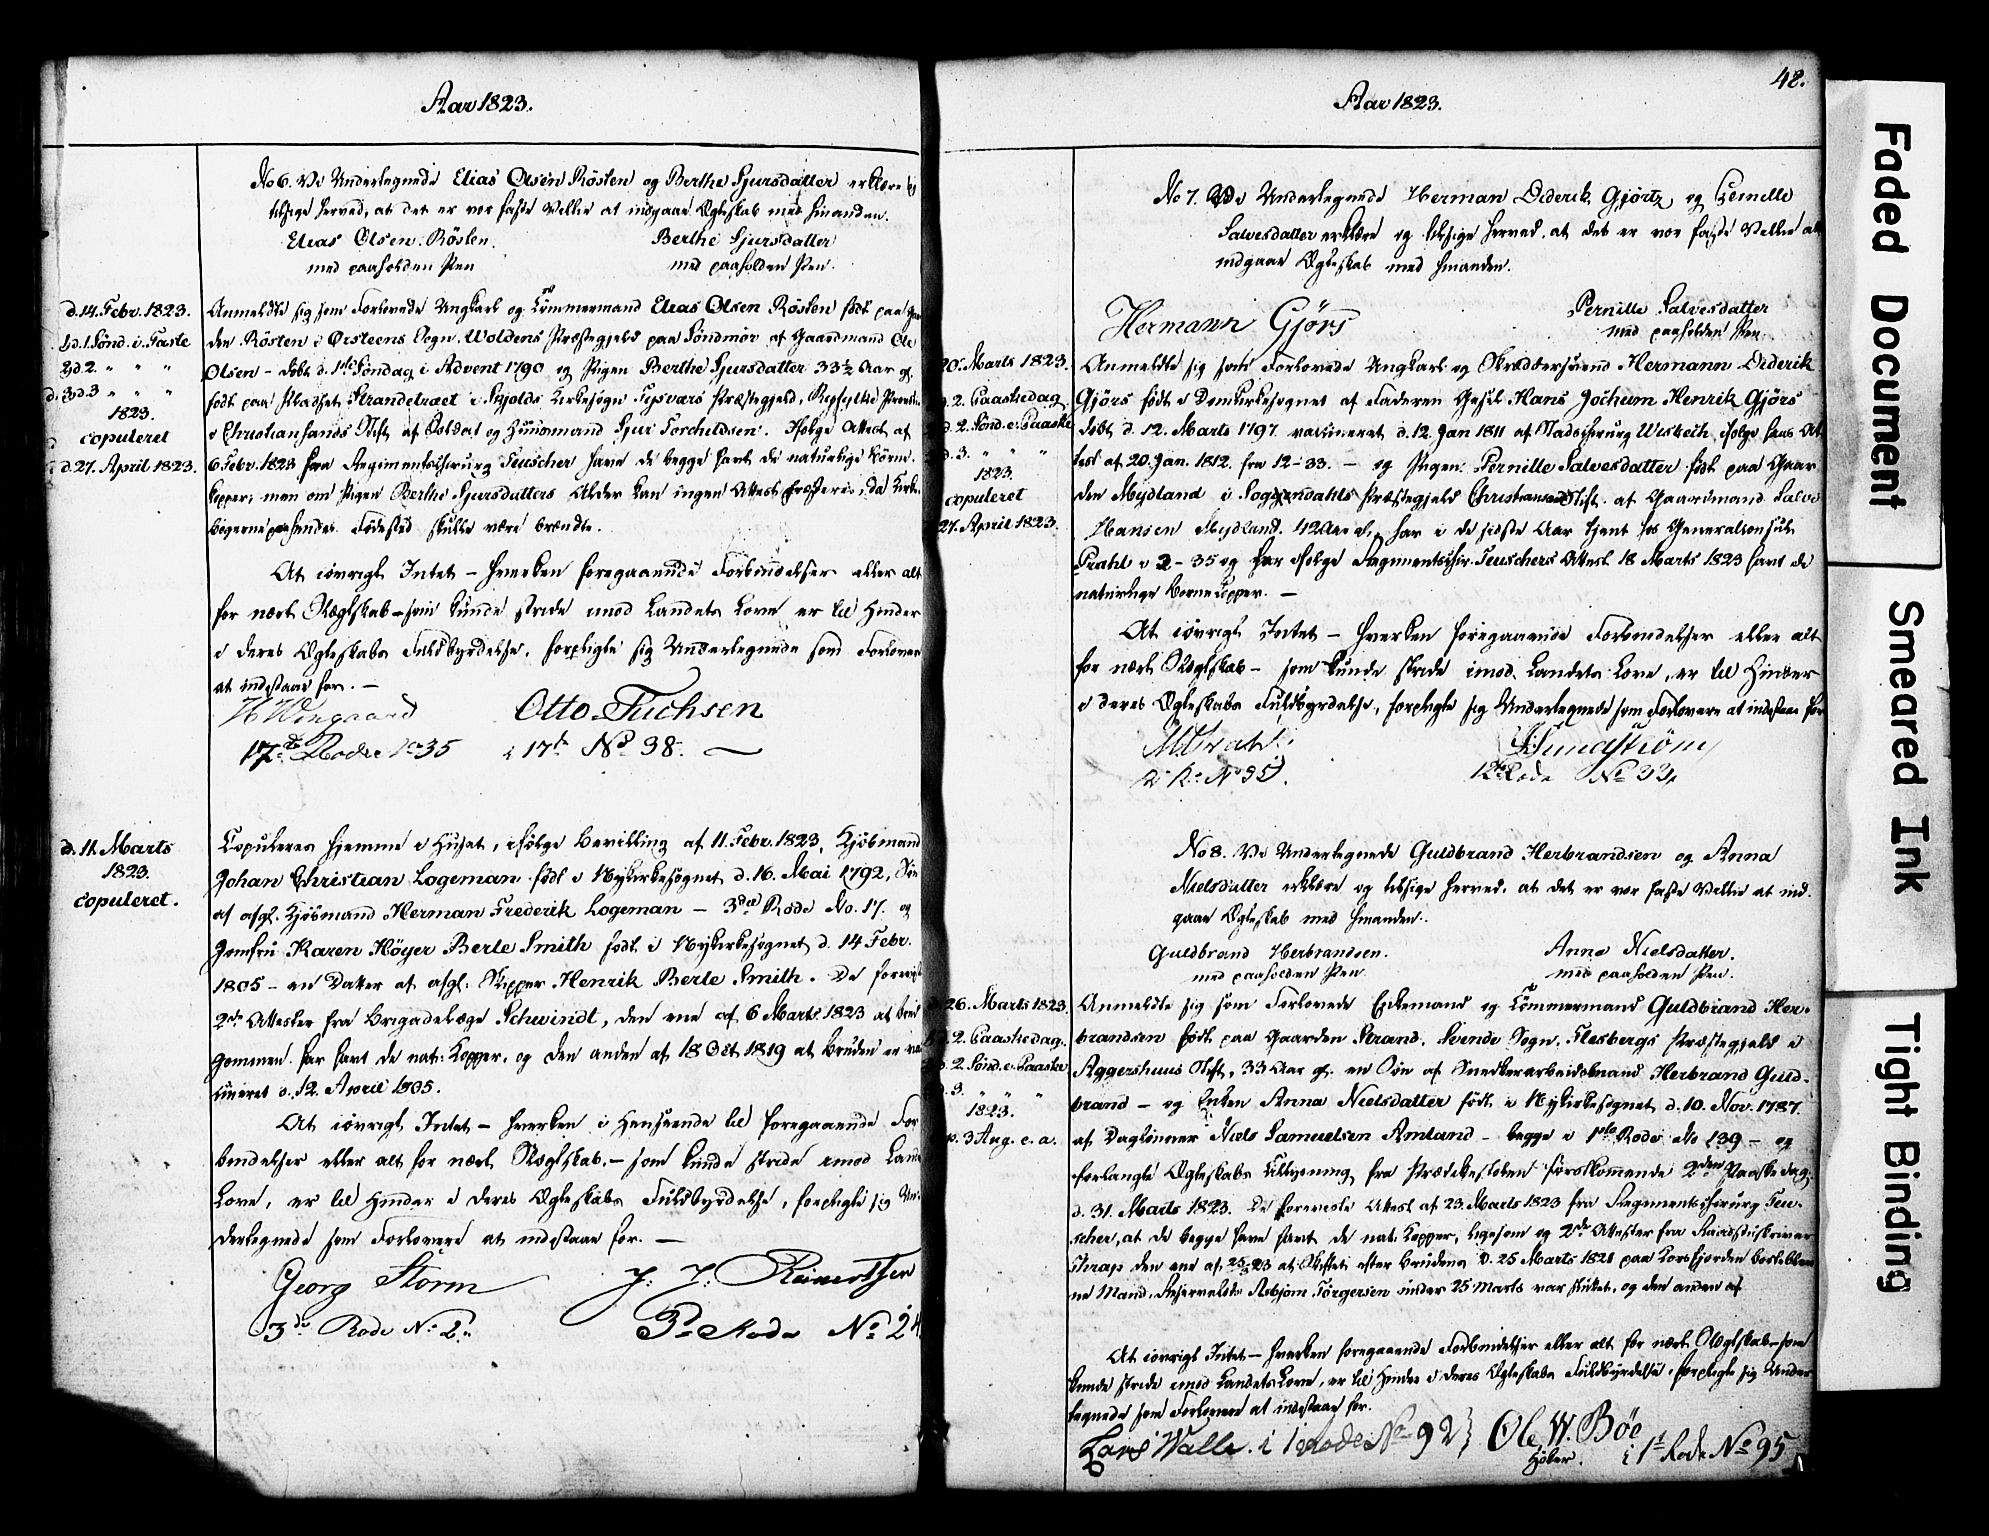 Aar 1823.
No 6. Vi Underlegnede Elias Olsen Røsten og Berthe Sjursdatter erklære og
tilsige herved, at det er vor faste Villie at indgaae Ægteskab med hinanden.
Elias Olsen Røsten. Berthe Sjursdatter
med paaholden Pen med paaholden Pen.
d. 14. Febr. 1823.
1 d. 1. Sønd. i. Faste
2 d. 2. " " "
3 d. 3 " " "
1823.
copuleret
d. 27. April 1823.
Anmeldte sig som Forlovede Ungkarl og Tømmermand Elias Olsen Røsten født paa Gaar
den Røsten i Ørsteens Sogn, Woldens Præstegjeld paa Søndmør af Gaardmand Ole
Olsen – døbt d. 1ste Søndag i Advent 1790 og Pigen Berthe Sjursdatter 33½ Aar gl.
født paa Pladset Strandetræet i Skjolds Kirkesogn Tysværs Præstegjeld, Ryfylke Provstie
i Christiansands Stift af Soldat og Huusmand Sjur Torchildsen. Ifølge Attest af
6 Febr. 1823 fra Regimentschirurg Teuscher have de begge havt de naturlige Børne-
kopper; men om Pigen Berthe Sjursdatters Alder kan ingen Attest præsteres, da Kirke-
bøgerne paa hendes Fødested skulle være brændte.
At iøvrigt Intet – hverken foregaaende Forbindelser eller alt
for nært Slægtskab – som kunde stride imod Landets Love er til Hinder
i deres Ægteskabs Fuldbyrdelse, forpligte sig Underlegnede som Forlovere
at indestaae for. –
H Wingaard Otto Fuchsen
17de Rode No 35 i 17de No 38.
d. 11. Marts
1823.
copuleret.
Copuleres hjemme i Huset, ifølge Bevilling af 11. Febr. 1823, Kjøbmand
Johan Christian Logeman født i Nykirkesognet d. 16. Mai 1792, Søn
af afgl. Kjøbmand Herman Frederik Logeman – 3die Rode No. 17. og
Jomfru Karen Höyer Berle Smith født i Nykirkesognet d. 14 Febr.
1805 – en Datter af afgl. Skipper Henrik Berle Smith. De foreviste
2de Attester fra Brigadelæge Schwindt, den ene af 6 Marts 1823 at Brud
gommen har havt de nat: Kopper, og den anden af 18 Oct 1819 at Bruden er vac
cineret d. 12. April 1805.
At iøvrigt Intet – hverken i Henseende til foregaaende For
bindelser eller alt for nært Slægtskab – som kunde stride imod Landets
Love, er til Hinder i deres Ægteskabs Fuldbyrdelse, forpligte sig Un-
derlegnede som Forlovere at indestaae for. –
Georg Storm J. J. Reinertsen
3de Rode No 2. 3de Rode No 24
48.
Aar 1823.
No 7. Vi Underlegnede Herman Diderik Gjörtz og Pernille
Salvesdatter erklære og tilsige herved, at det er vor faste Villie at
indgaae Ægteskab med hinanden.
Hermann Gjörs Pernille Salvesdatter
med paaholden Pen.
20. Marts 1823.
2. Paaskedag
d. 2. Sønd. e. Paaske
d. 3. " "
1823.
copuleret
27. April 1823.
Anmeldte sig som Forlovede Ungkarl og Skræddersvend Hermann Diderik
Gjörs født i Domkirkesognet af Faderen Gesel Hans Jochum Henrik Gjörs
døbt d. 12. Marts 1797. vaccineret d. 12. Jan 1811 af Stadschirurg Wisbech ifølge hans At
test af 20. Jan. 1812. fra 12–33. – og Pigen: Pernille Salvesdatter født paa Gaar
den Mydland i Soggendahls Præstegjeld Christiansand Stift af Gaardmand Salve
Hansen Mydland. 42 Aar gl., har i de sidste Aar tjent hos Generalconsul
Prahl i 2–35 og har ifølge Regimentschir. Teuschers Attest 18 Marts 1823 havt de
naturlige Børnekopper. –
At iøvrigt Intet – hverken foregaaende Forbindelser eller alt
for nært Slægtskab – som kunde stride imod Landets Love, er til Hinder
i deres Ægteskabs Fuldbyrdelse, forpligte sig Underlegnede som Forlovere at indestaae for
M Prahl. Sundström
2 Ro. No 35. 12te Rode No 33
No 8. Vi Underlegnede Guldbrand Herbrandsen og Anna
Nielsdatter erklære og tilsige herved, at det er vor faste Villie at ind-
gaae Ægteskab med hinanden.
Guldbrand Herbrandsen. Anna Nielsdatter.
med paaholden Pen. med paaholden Pen.
26. Marts 1823.
2. Paaskedag.
2. Sønd. e. Paaske
d. 3. " "
1823.
p. 3 Aug. e. a.
Anmeldte sig som Forlovede Enkemand og Tømmermand Guldbrand Her-
brandsen født paa Gaarden Strand, Svende Sogn, Flesbergs Præstegjeld i
Aggershuus Stift, 33 Aar gl. en Søn af Snedkerarbeidsmand Herbrand Guld-
brand – og Enken Anna Nielsdatter født i Nykirkesognet d. 10. Nov. 1787.
af Dagleinner Niels Samuelsen Amland – begge i 1ste Rode No 139 – og
forlangte Ægteskabs Tillysning fra Prædikestolen førstkommende 2den Paaskedag
d. 31. Marts 1823. De foreviste Attest af 23. Marts 1823 fra Regimentschirurg Teu-
scher, at de begge have havt de nat: Kopper, ligesom og 2de Attester fra Raadstueskriver
Thrap den ene af 25/3 23 at Skiftet efter Brudens d. 25 Marts 1821 paa Korsfjorden bortblev-
ne Mand, Reserveløits Asbjørn Törgersen under 25 Marts var sluttet, og den anden af
At iøvrigt Intet – hverken foregaaende Forbindelser eller alt for nært Slægtskab – som
kunde stride imod Landets Love, er til Hinder i deres Ægteskabs Fuldbyrdelse, forpligte sig Under
legnede som Forlovere at indestaae for.
Lars Walle. i 1 Rode No 92 } Ole W. Bøe
Høker. i 1st Rode No 95
Faded Document
Smeared Ink
Tight Binding